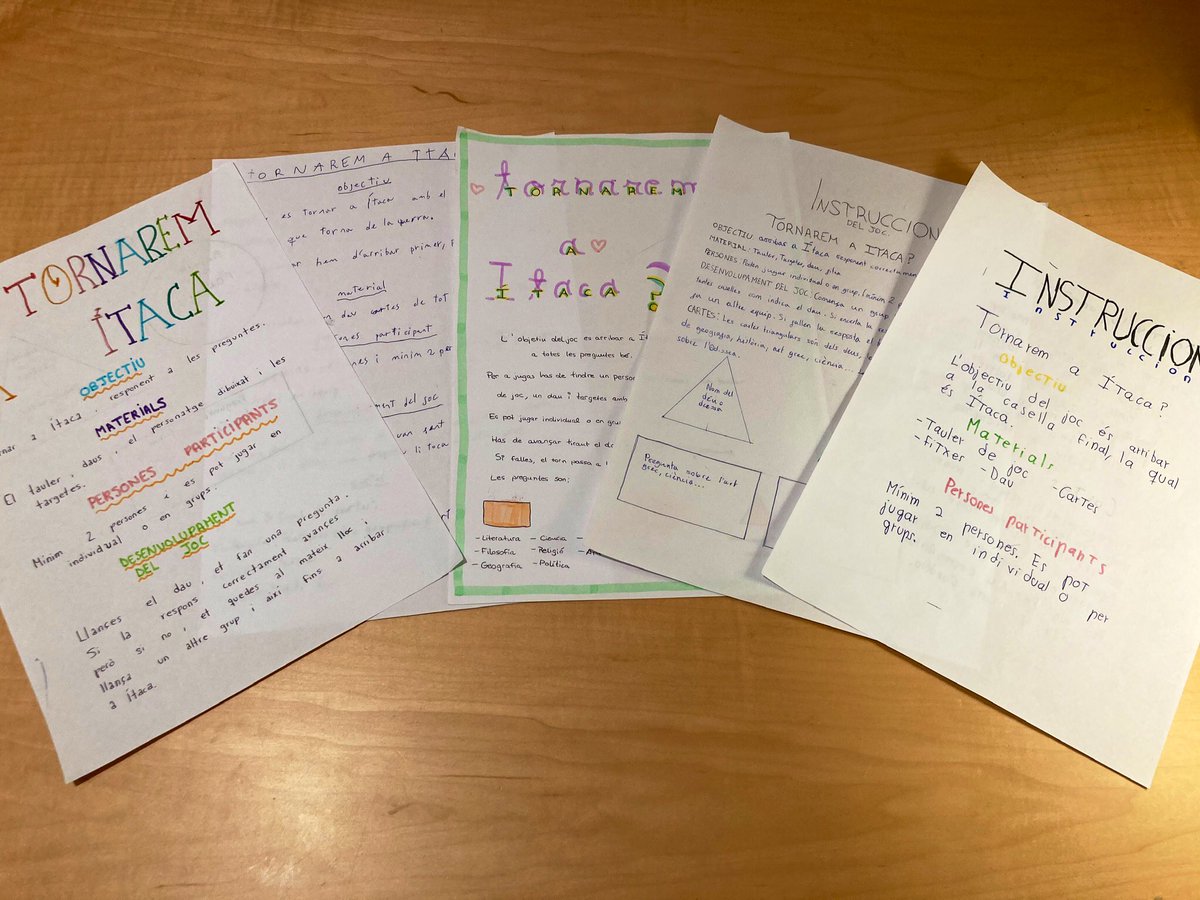 TORNAREM
A ÍTACA
OBJECTIU
nar a Ítaca, responent a les preguntes.
MATERIALS
El tauler, daus, el personatge dibuixat i les
targetes.
PERSONES PARTICIPANTS
Mínim 2 persones i es pot jugar en
individual o en grups.
DESENVOLUPAMENT
DEL JOC
Llances el dau, et fan una pregunta.
Si la respons correctament avances
però si no, et quedes al mateix lloc i
llança un altre grup i així fins a arribar
a Ítaca.
TORNAREM A ITA
objectiu
es tornar a Ítaca amb el
que torna de la guerra.
hem d'arribar primer,
material
dav cartes de tot
participant
i minim 2 per
ment del joc
van sent
li toca
tornarem
TORNAREM
a
A
Ítaca ?
ÍTACA
L'objectiu del joc es arribar a Í
a totes les preguntes bé.
Per a jugas has de tindre un person
de joc, un dau i targetes amb
Es pot jugar individual o en gru
Has de avançar tirant el da
Si falles, el torn passa a l
Les preguntes son:
- Literatura - Ciencia
- Filosofia - Religió
- Geografia - Política
INSTRUCCION
DEL JOC.
TORNAREM A ITACA?
OBJECTIU arribar a Ítaca responent correctamen
MATERIAL: Tauler, Targetes, dau,
PERSONES: Poden jugar individual o en grup. (mínim 2 p
DESENVOLUPAMENT DEL JOC: Comença un grup
tantes caselles com indica el dau. Si encerta la re
ja un altre equip. Si fallen la resposta el
CARTES: Les cartes triangulars són dels deus,
de geografia, història, art grec, ciència...
sobre l'Odissea.
Nom del
deu o
deessa
Pregunta sobre l'art
grec, ciència...
INSTRUCCION
INSTRUCCION
Tornarem a Ítaca?
Objectiu
L'objectiu del joc és arribar
a la casella final, la qual
és Ítaca.
Materials
-Tauler de joc -Cartes
-Fitxes -Dau
Persones participants
Mínim 2 persones. Es pot
jugar en individual o per
grups.